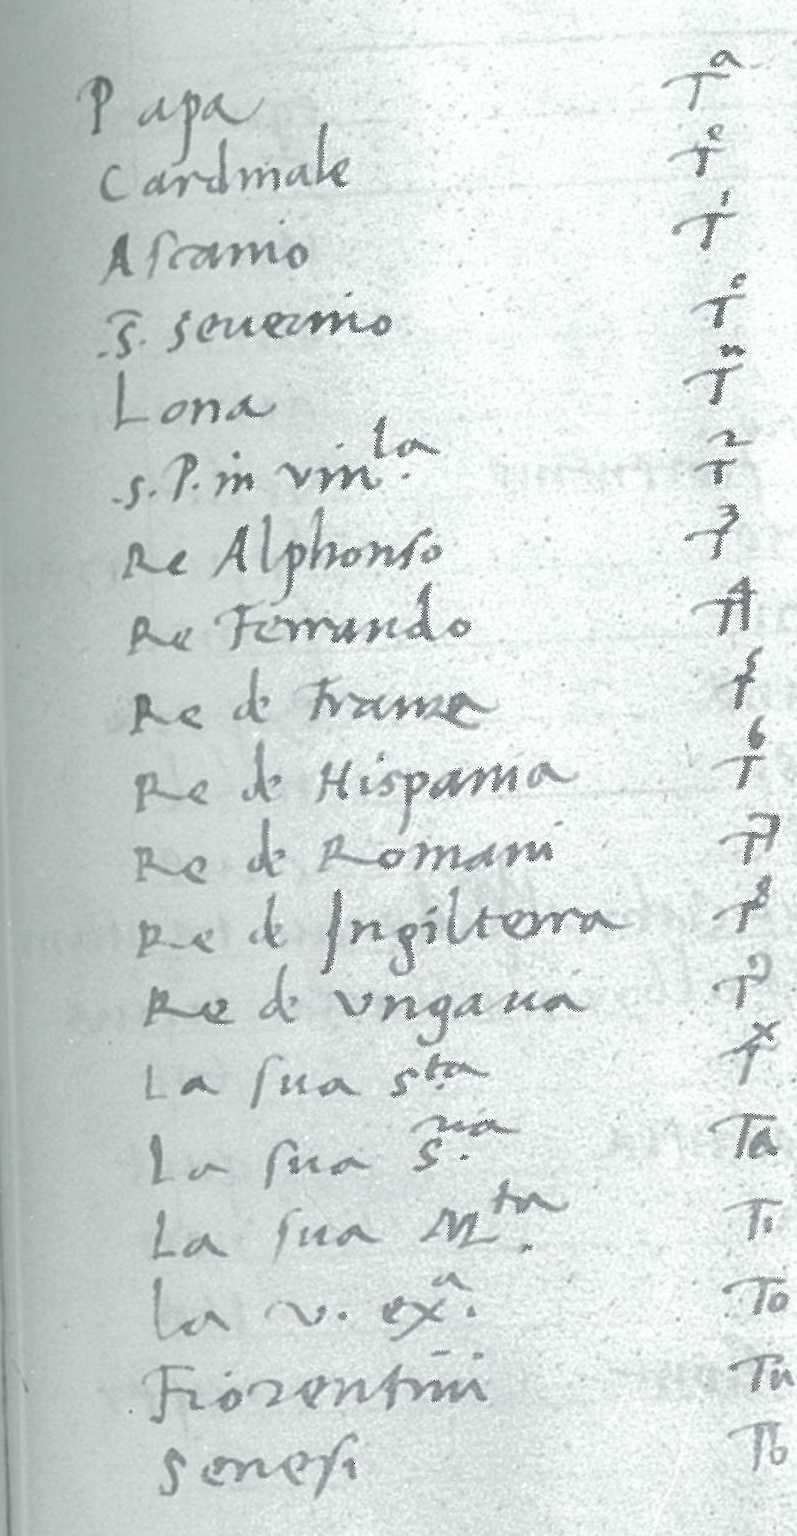 Papa T^a
Cardinale T^e
Ascanio T^i
.S. Severino T^o
Lona T^u
.S. P. in vin^la. T^2
Re Alphonso T^3
Re Ferrando T^4
Re de Franza T^5
Re de Hispania T^6
Re de Romani T^7
Re de Ingilterra T^8
Re de Ungaria T^9
La sua S^ta. T^x
La sua S.^ria Ta
La sua M^ta. Ti
la v. ex^a. To
Fiorentini Tu
Senesi Tb